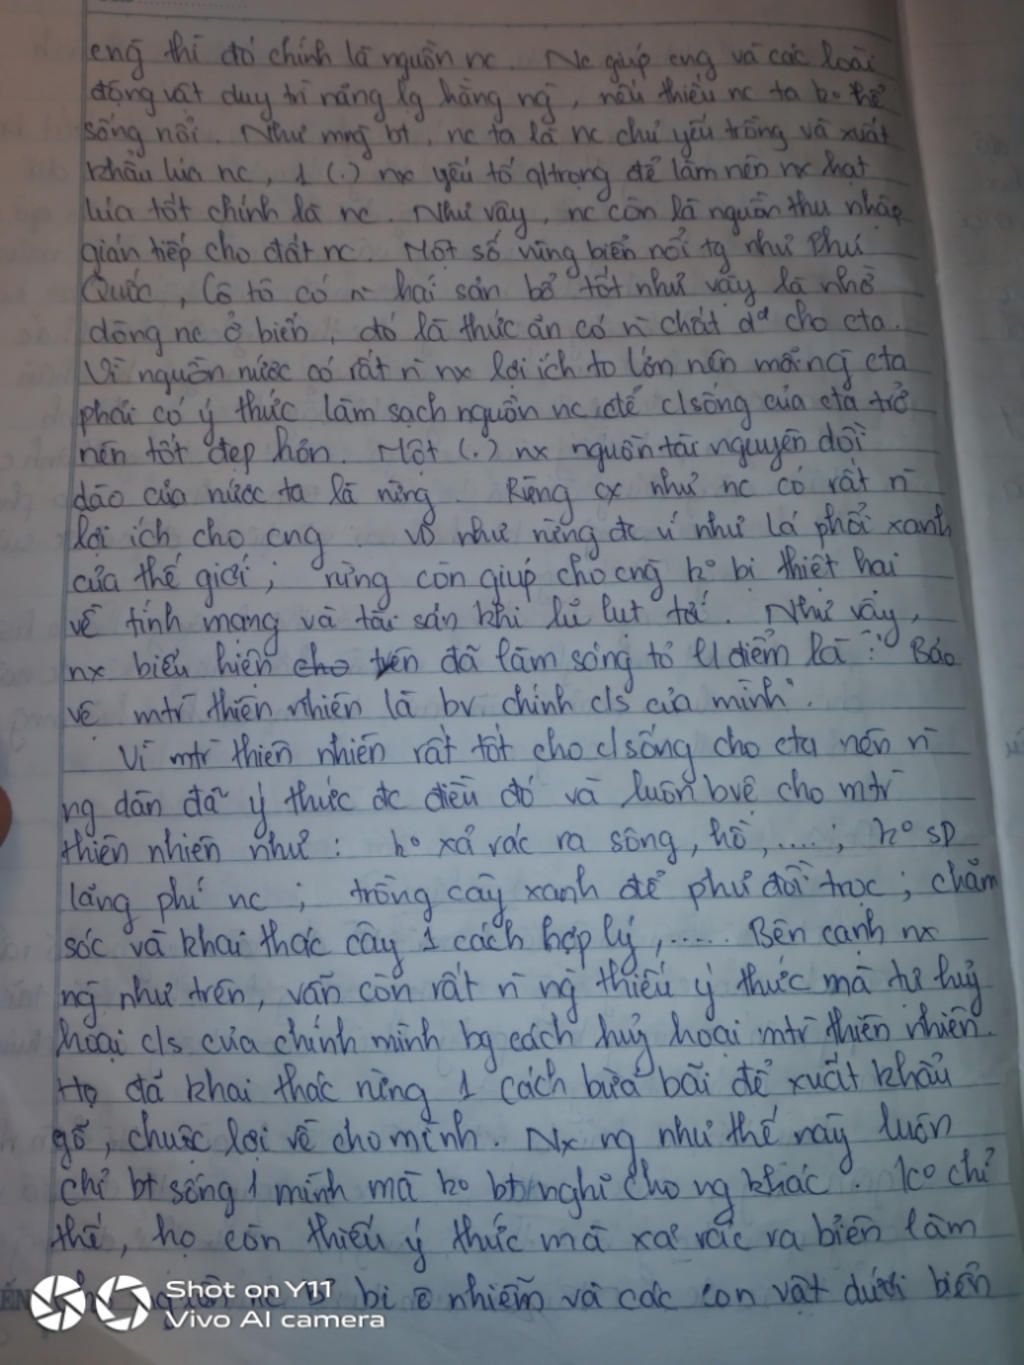 cng thì đó chính là nguồn nc. Nc giúp cng và các loài
động vật duy trì năng lg hằng ng, nếu thiếu nc ta ko thể
sống nổi. Như mng bt, nc ta là nc chủ yếu trồng và xuất
khẩu lúa nc, 1 (.) nx yếu tố qtrọng để làm nên nx hạt
lúa tốt chính là nc. Như vậy, nc còn là nguồn thu nhập
gián tiếp cho đất nc. Một số vùng biển nổi tg như Phú
Quốc, Cô tô có n hải sản bổ tốt như vậy là nhờ
dòng nc ở biển, đó là thức ăn có n chất d² cho cta.
Vì nguồn nước có rất n nx lợi ích to lớn nên mỗi ng cta
phải có ý thức làm sạch nguồn nc để c/sống của cta trở
nên tốt đẹp hơn. Một (.) nx nguồn tài nguyên dồi
dào của nước ta là rừng. Rừng cx như nc có rất n
lợi ích cho cng. Vd như rừng đc ví như lá phổi xanh
của thế giới; rừng còn giúp cho cng ko bị thiệt hại
về tính mạng và tài sản khi lũ lụt tới. Như vậy,
nx biểu hiện cho trên đã làm sáng tỏ q/điểm là: "Bảo
vệ mtr thiên nhiên là bv chính c/s của mình".
Vì mtr thiên nhiên rất tốt cho c/sống cho cta nên n
ng dân đã ý thức đc điều đó và luôn bvệ cho mtr
thiên nhiên như: ko xả rác ra sông, hồ,....; ko sp
lãng phí nc; trồng cây xanh để phủ đồi trọc; chăm
sóc và khai thác cây 1 cách hợp lý,..... Bên cạnh nx
ng như trên, vẫn còn rất n ng thiếu ý thức mà tự huỷ
hoại c/s của chính mình bg cách huỷ hoại mtr thiên nhiên.
Họ đã khai thác rừng 1 cách bừa bãi để xuất khẩu
gỗ, chuộc lợi về cho mình. Nx ng như thế này luôn
chỉ bt sống 1 mình mà ko bt nghĩ cho ng khác. Ko chỉ
thế, họ còn thiếu ý thức mà xả rác ra biển làm
nguồn nc bị ô nhiễm và các con vật dưới biển
Shot on Y11
Vivo AI camera